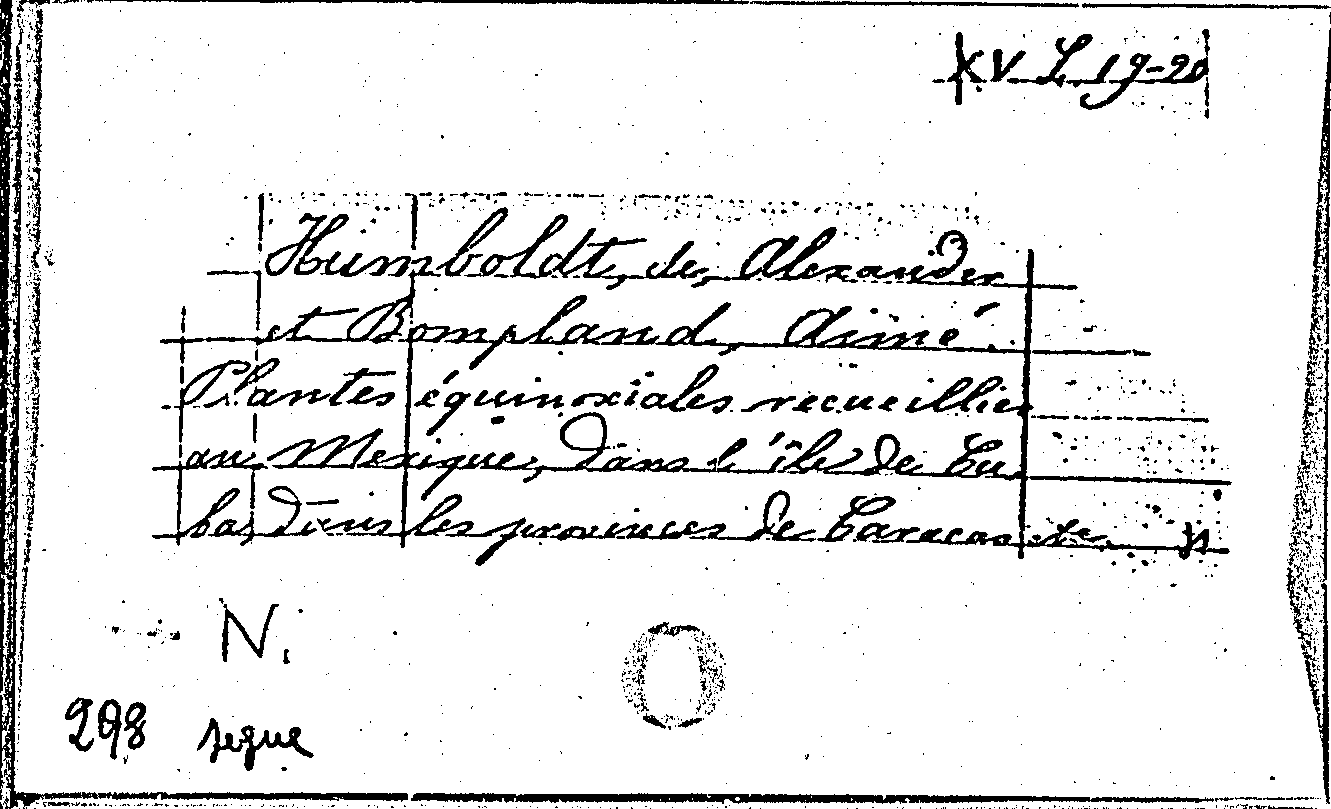 XV L 19-20
Humboldt, de, Alexander
et Bompland, Aimé.
Plantes équinoxiales recueillies
au Mexique, dans l'île de Cu
ba, dans les provinces de Caracas etc.
N.
298 segue